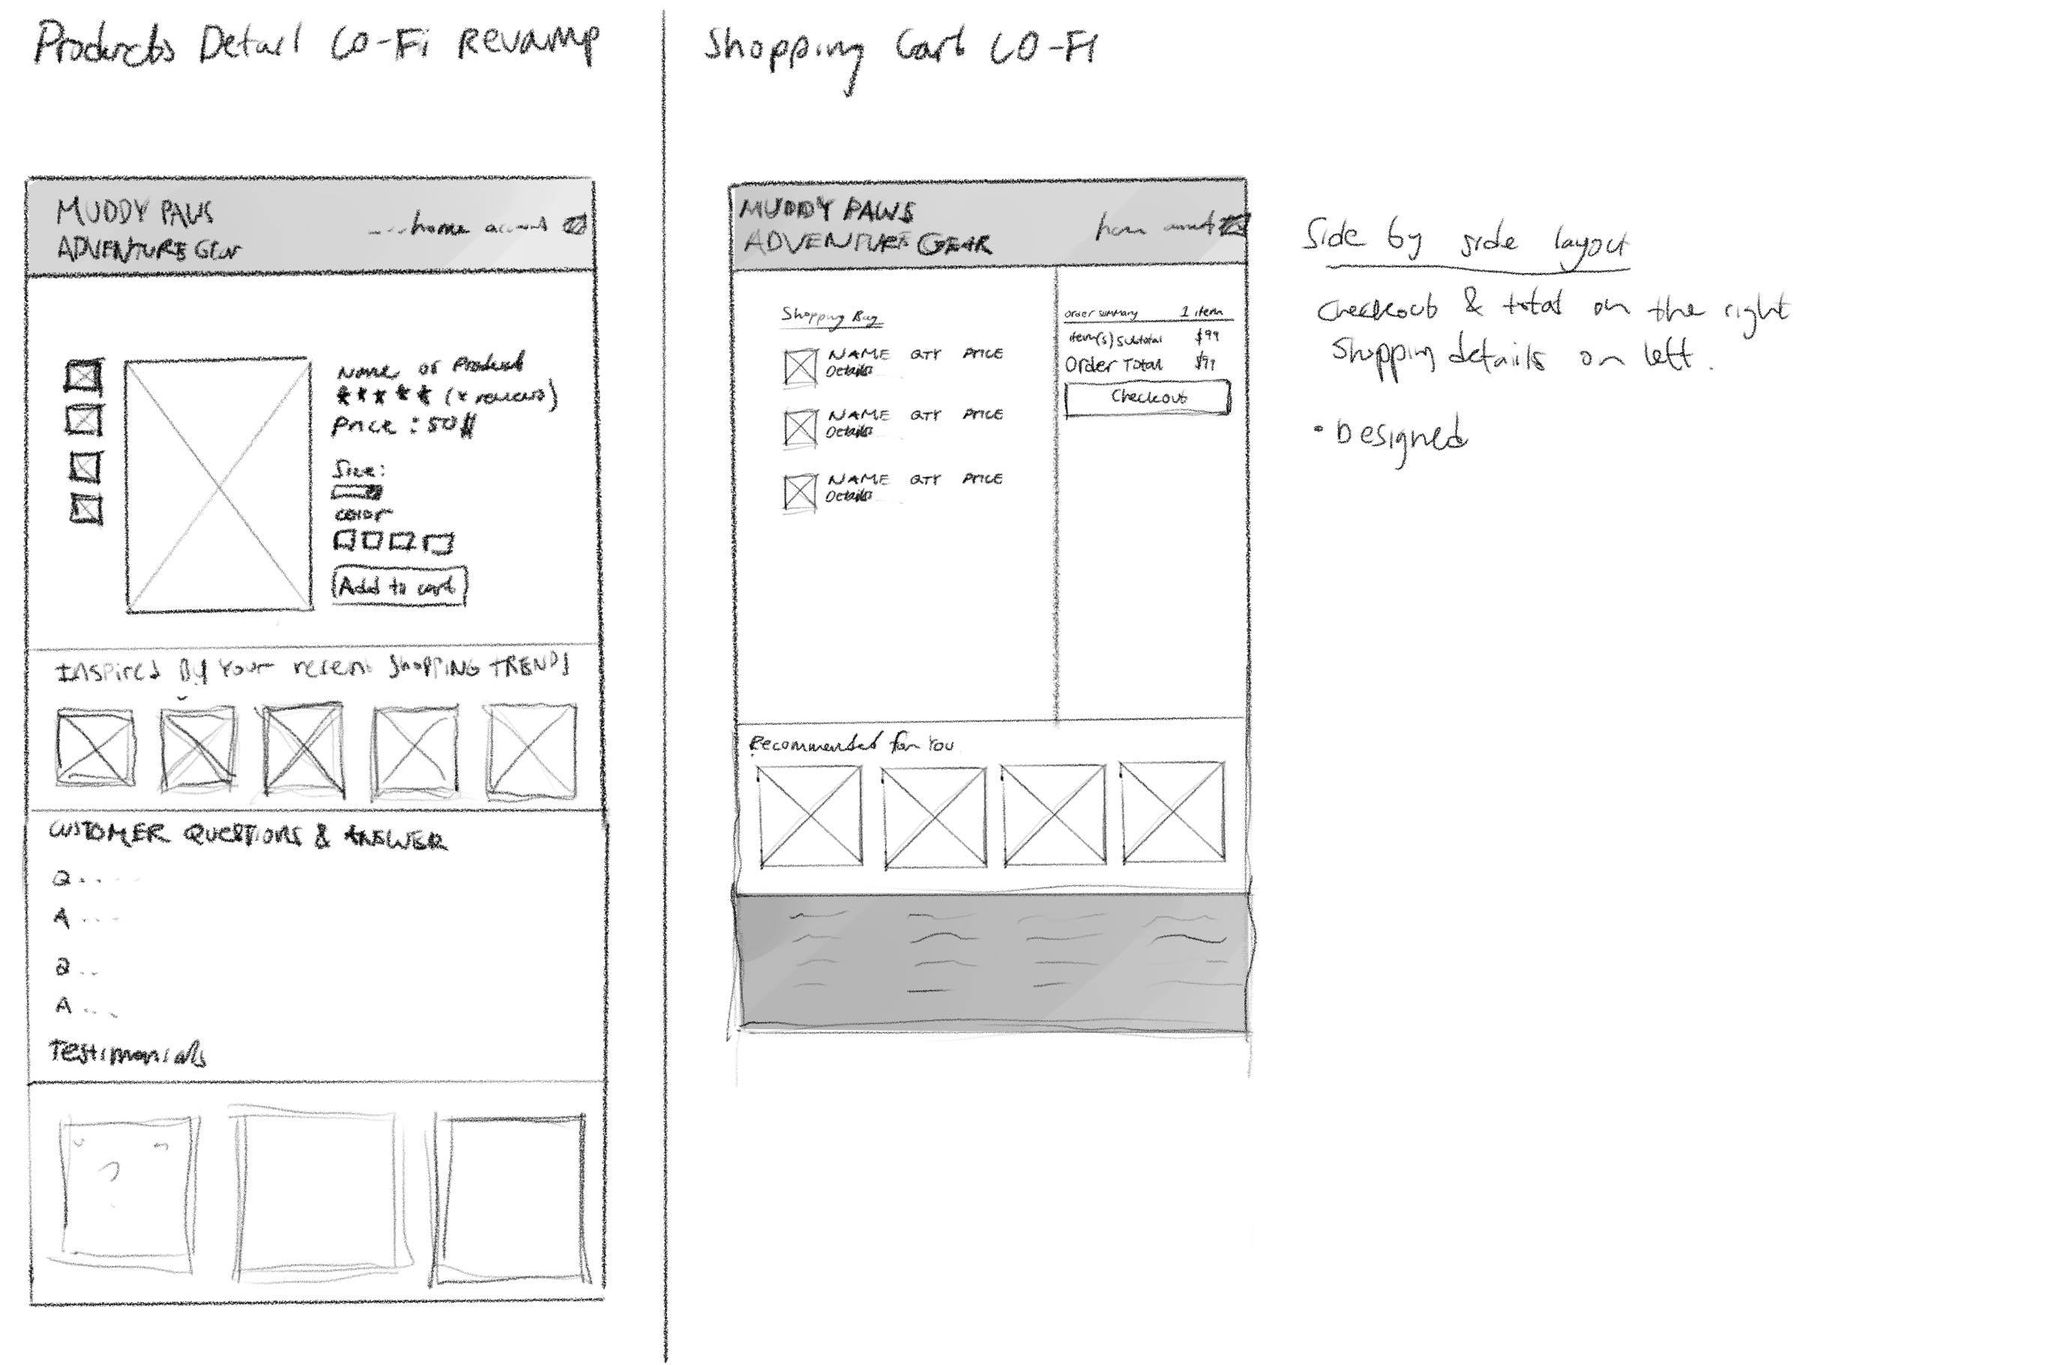 Products Detail LO-Fi Revamp
MUDDY PAWS
ADVENTURE GEAR
home account
Name of Product
★★★★★ (* reviews)
Price : 50$
Size:
color
Add to cart
Inspired By Your recent Shopping TRENDS
CUSTOMER QUESTIONS & ANSWER
Q....
A ...
Q ..
A ...
Testimonials
Shopping Cart LO-FI
MUDDY PAWS
ADVENTURE GEAR
home
Shopping Bag
NAME QTY PRICE
Details
NAME QTY PRICE
Details
NAME QTY PRICE
Details
order summary 1 item
item(s) subtotal $99
Order Total $99
Checkout
Recommended for You
Side by side layout
Checkout & total on the right
Shopping details on left.
• Designed